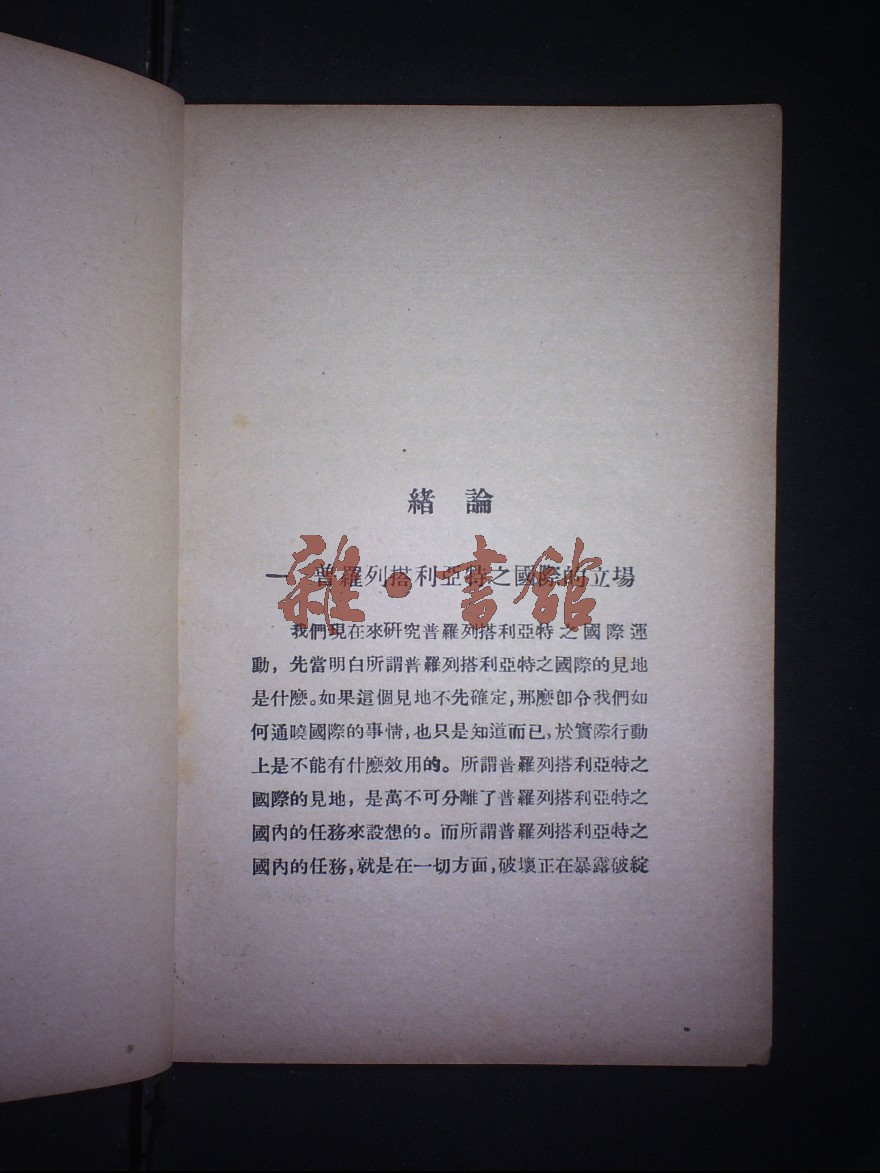 緒論
一 普羅列搭利亞特之國際的立場
雜·書館
我們現在來研究普羅列搭利亞特之國際運
動，先當明白所謂普羅列搭利亞特之國際的見地
是什麼。如果這個見地不先確定，那麼卽令我們如
何通曉國際的事情，也只是知道而已，於實際行動
上是不能有什麼效用的。所謂普羅列搭利亞特之
國際的見地，是萬不可分離了普羅列搭利亞特之
國內的任務來設想的。而所謂普羅列搭利亞特之
國內的任務，就是在一切方面，破壞正在暴露破綻